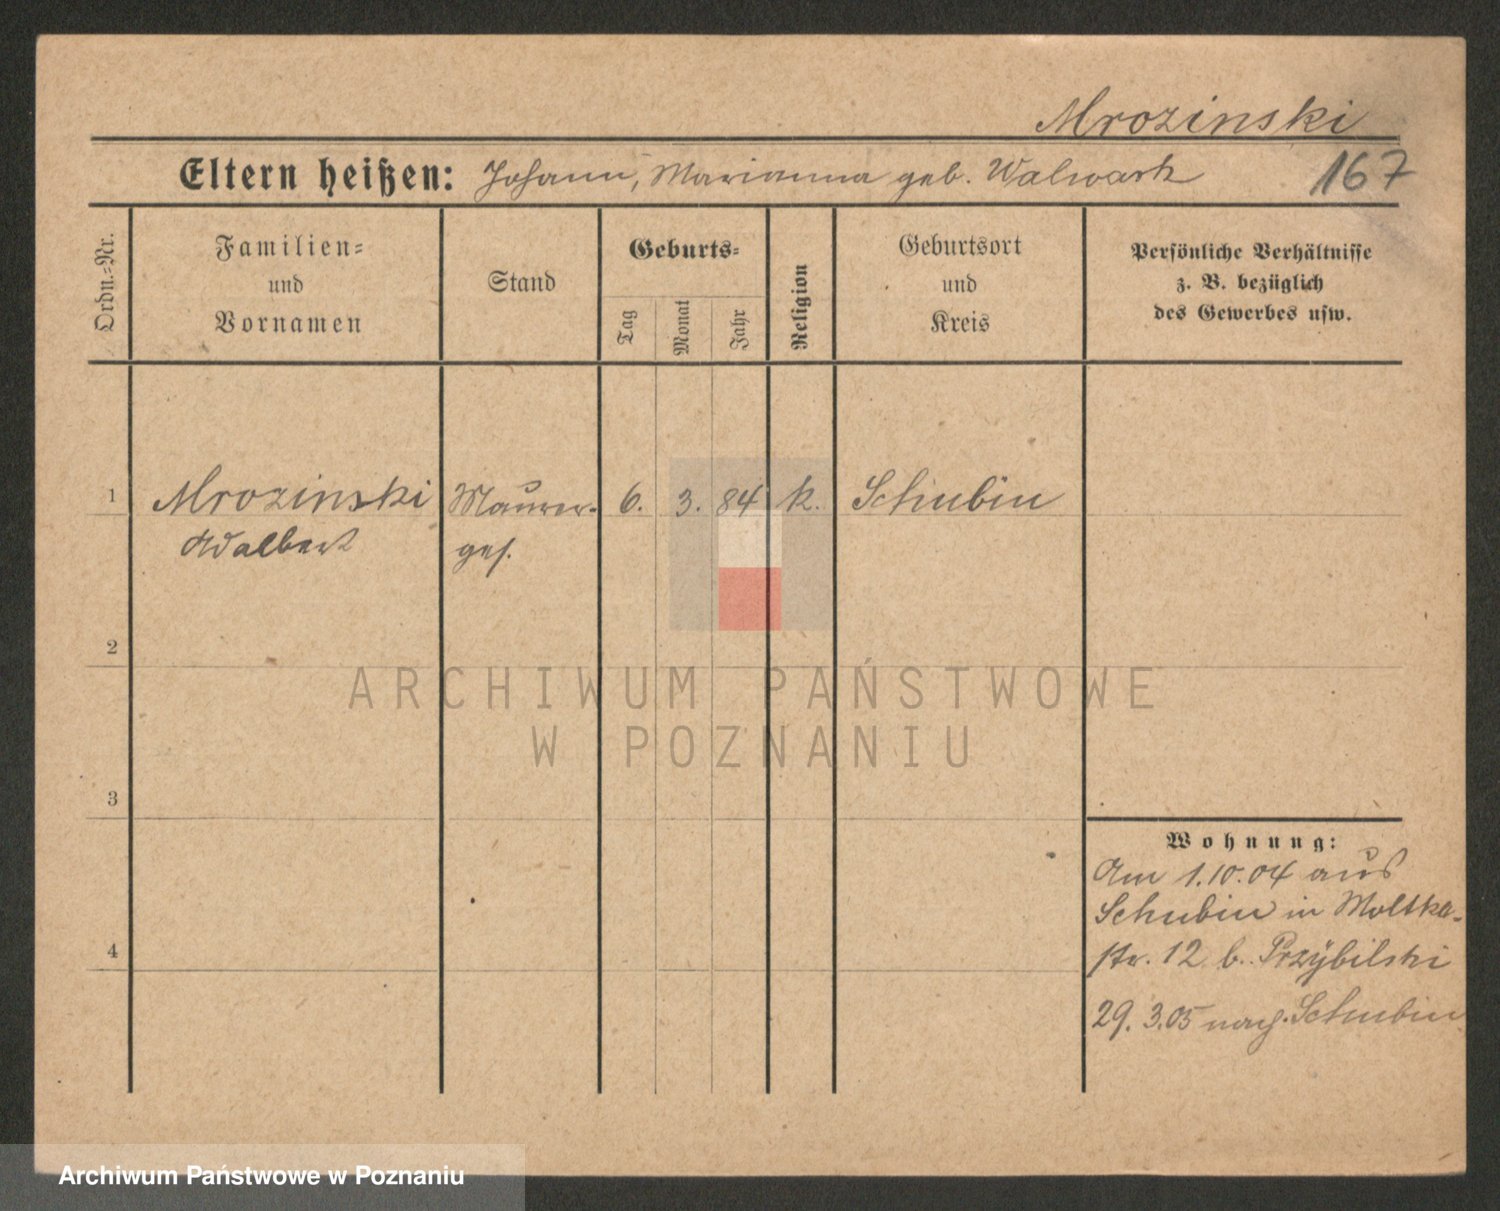 Mrozinski
167
Eltern heißen: Johann, Marianna geb. Walwark
Ordn.-Nr.
Familien-
und
Vornamen
Stand
Geburts-
Tag
Monat
Jahr
Religion
Geburtsort
und
Kreis
Persönliche Verhältnisse
z. B. bezüglich
des Gewerbes usw.
1 Mrozinski Maurer- 6. 3. 84 k. Schubin
Adalbert ges.
2
3
4
Wohnung:
Am 1.10.04 aus
Schubin in Moltke-
str. 12 b. Przybilski
29. 3.05 nach Schubin
ARCHIWUM PAŃSTWOWE
W POZNANIU
Archiwum Państwowe w Poznaniu